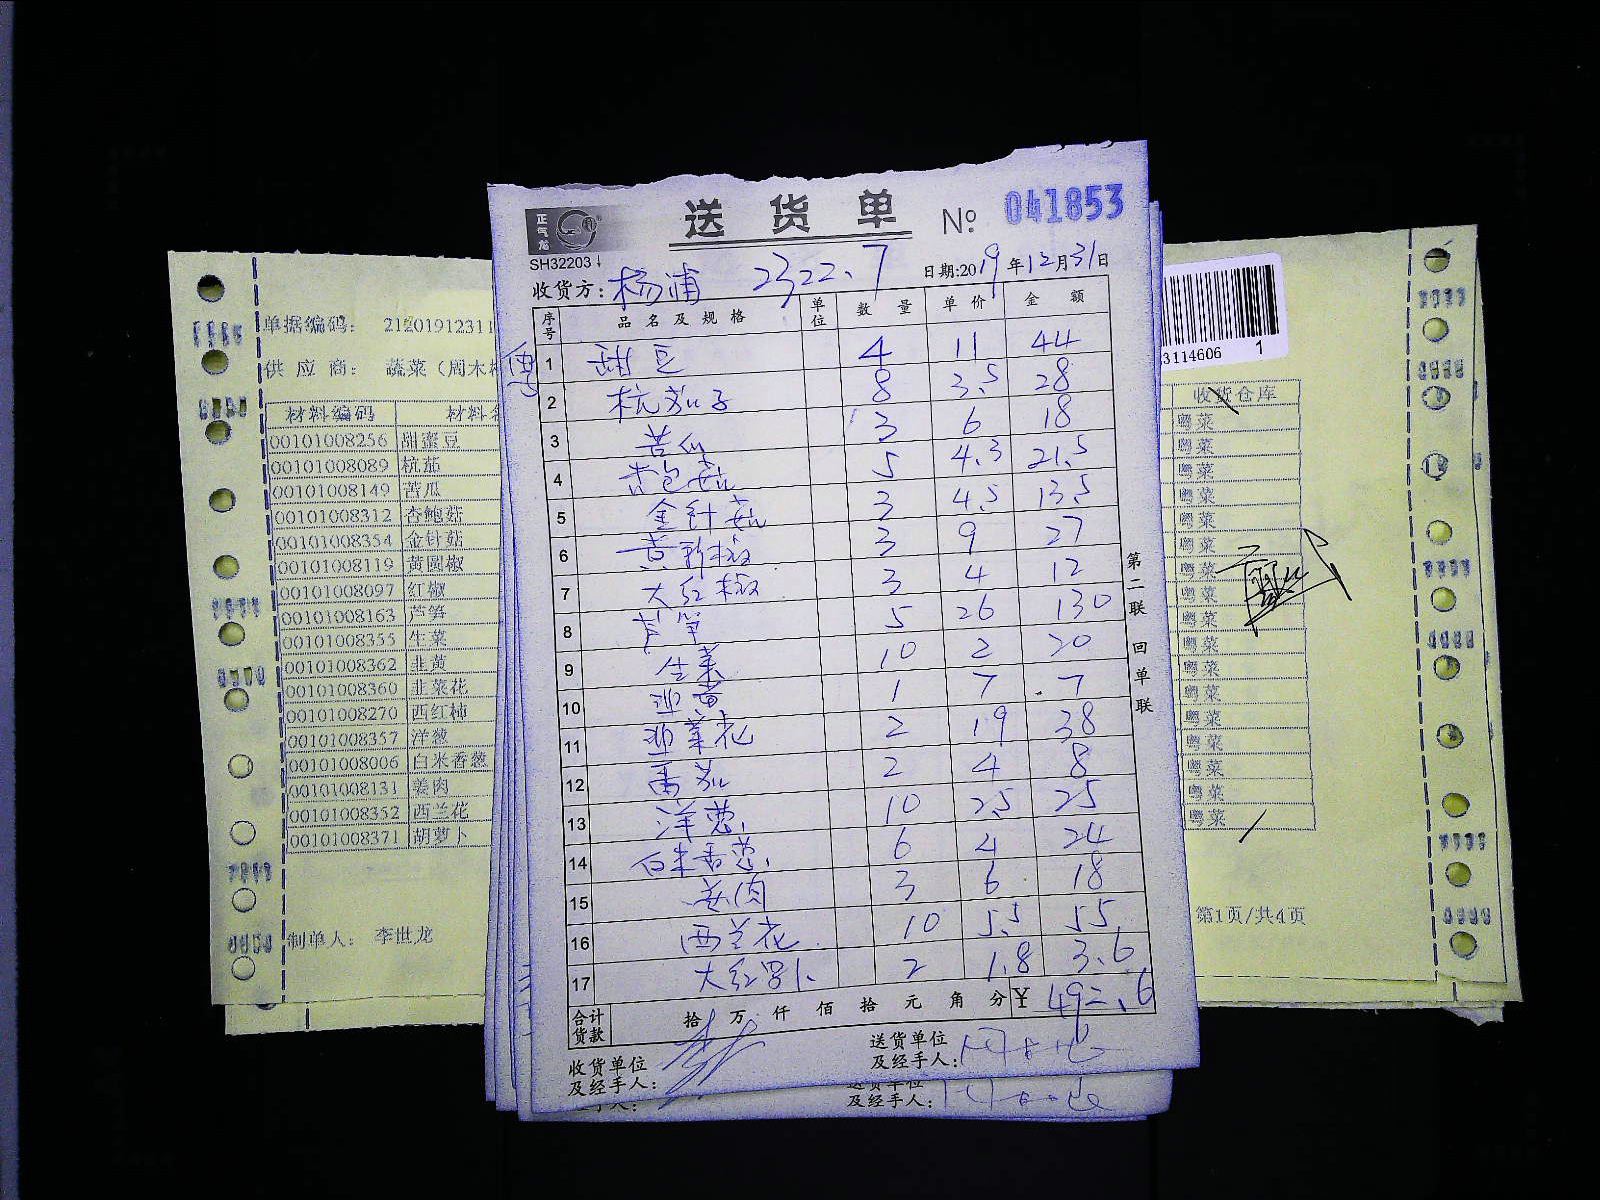 送货单 № 041853
正气龙
SH32203
收货方：杨浦 2322.7 日期:2019年12月31日
序号 品名及规格 单位 数量 单价 金额
1 甜豆 4 11 44
2 杭茄子 8 3.5 28
3 苦瓜 3 6 18
4 杏包菇 5 4.3 21.5
5 金针菇 3 4.5 13.5
6 黄彩椒 3 9 27
7 大红椒 3 4 12
8 芦笋 5 26 130
9 生菜 10 2 20
10 韮黄 1 7 7
11 韮菜花 2 19 38
12 番茄 2 4 8
13 洋葱 10 2.5 25
14 白米香葱 6 4 24
15 姜肉 3 6 18
16 西兰花 10 5.5 55
17 大红罗卜 2 1.8 3.6
合计货款 拾 万 仟 佰 拾 元 角 分 ¥ 492.6
收货单位及经手人：
送货单位及经手人：
及经手人：
第二联 回单联
单据编码： 21201912311
供应商： 蔬菜（周木
材料编码 材料名
00101008256 甜蜜豆
00101008089 杭茄
00101008149 苦瓜
00101008312 杏鲍菇
00101008354 金针菇
00101008119 黄圆椒
00101008097 红椒
00101008163 芦笋
00101008355 生菜
00101008362 韭黄
00101008360 韭菜花
00101008270 西红柿
00101008357 洋葱
00101008006 白米香葱
00101008131 姜肉
00101008352 西兰花
00101008371 胡萝卜
制单人： 李世龙
3114606 1
收货仓库
粤菜
粤菜
粤菜
粤菜
粤菜
粤菜
粤菜
粤菜
粤菜
粤菜
粤菜
粤菜
粤菜
粤菜
粤菜
粤菜
粤菜
第1页/共4页